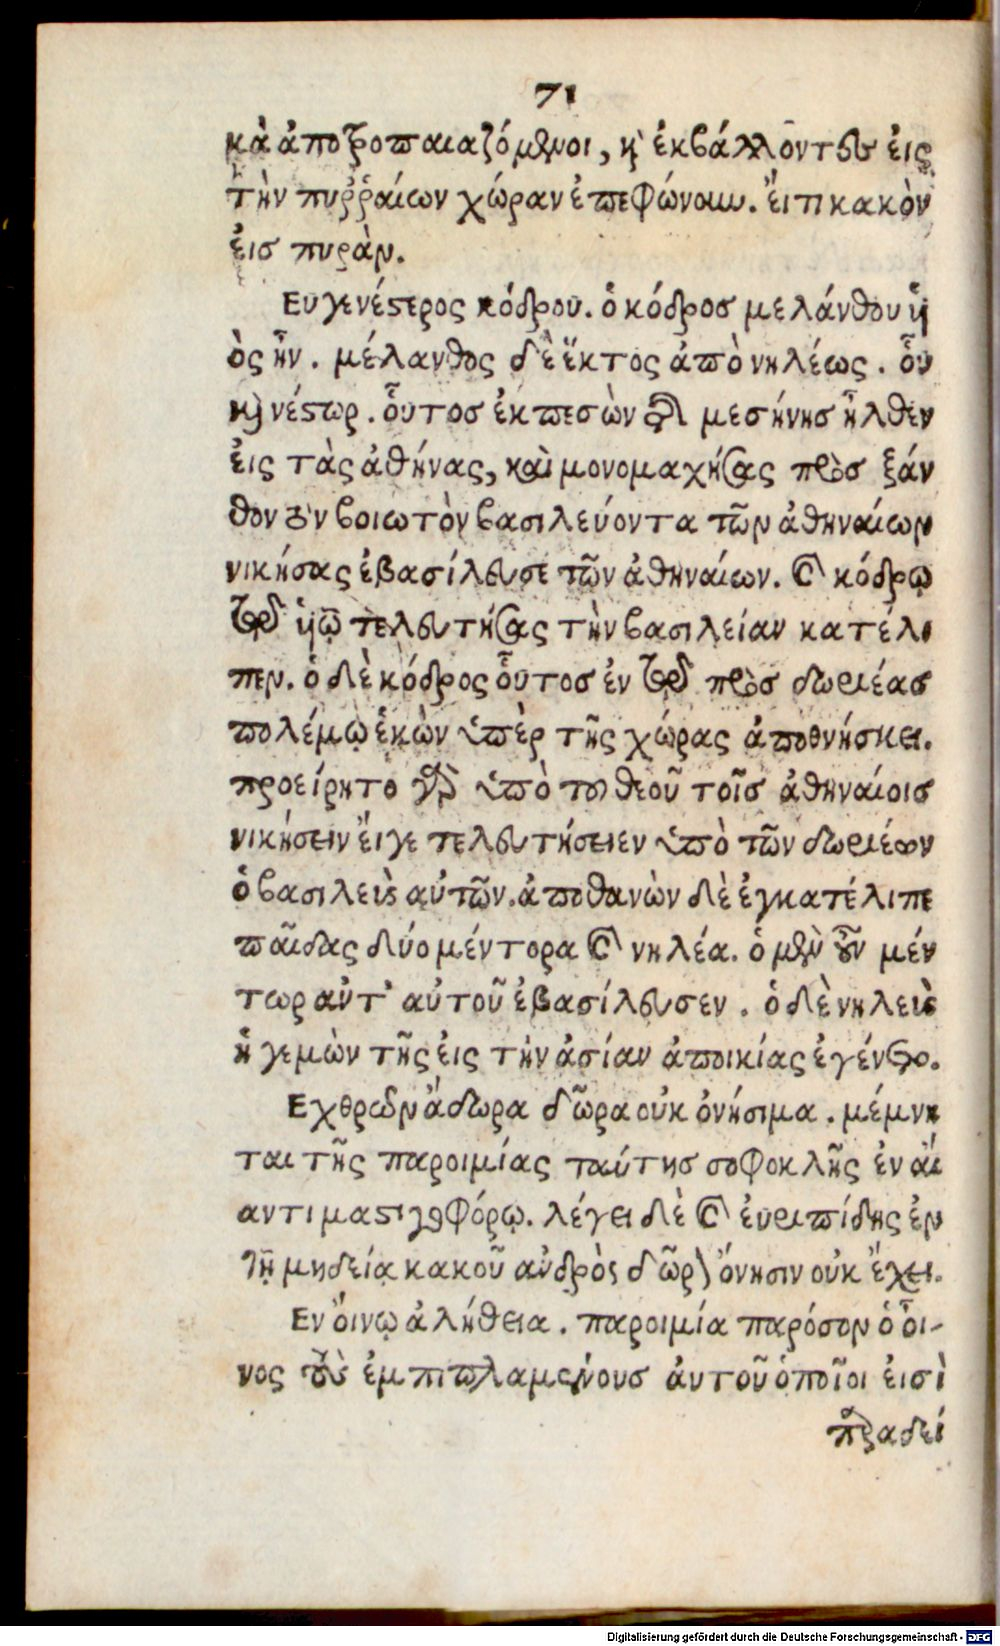 71
κὰ ἀποτροπαιαζόμενοι, καὶ ἐκβάλλοντες εἰς
τὴν πυῤῥαίων χώραν ἐπεφώνουν. ἔιτι κακὸν
ἐισ πυρὰν.
Ευγενέστερος κόδρου. ὁ κόδροσ μελάνθου ὑι
ὸς ἦν. μέλανθος δὲ ἕκτος ἀπὸ νηλέως. οὗ
καὶ νέστωρ. οὗτοσ ἐκπεσὼν διὰ μεσήνησ ἦλθεν
ἐις τὰς ἀθήνας, καὶ μονομαχήσας πρὸσ ξάν
θον τὸν βοιωτὸν βασιλεύοντα τῶν ἀθηναίων
νικήσας ἐβασίλευσε τῶν ἀθηναίων. καὶ κόδρῳ
τῷ ὑιῷ τελευτήσας τὴν βασιλείαν κατέλι
πεν. ὁ δὲ κόδρος οὗτοσ ἐν τῷ πρὸσ δωριέασ
πολέμῳ ἑκὼν ὑπὲρ τῆς χώρας ἀποθνήσκει.
προείρητο γὰρ ὑπὸ του θεοῦ τοῖσ ἀθηναίοισ
νικήσειν ἔιγε τελευτήσειεν ὑπὸ τῶν δωριέων
ὁ βασιλεὺς αὐτῶν. ἀποθανὼν δὲ ἐγκατέλιπε
παῖδας δύο μέντορα καὶ νηλέα. ὁ μὲν οὖν μέν
τωρ ἀντ' αὐτοῦ ἐβασίλευσεν. ὁ δὲ νηλεὺς
ἡγεμὼν τῆς ἐις τὴν ἀσίαν ἀποικίας ἐγένετο.
Εχθρῶν ἄδωρα δῶρα οὐκ ὀνήσιμα. μέμνη
ται τῆς παροιμίας ταύτησ σοφοκλῆς ἐν ἄι
αντι μαστιγοφόρῳ. λέγει δὲ καὶ ἐυριπίδης ἐν
τῇ μηδείᾳ κακοῦ ἀνδρὸς δῶρα ὄνησιν οὐκ ἔχει.
Εν ὄινῳ ἀλήθεια. παροιμία παρόσον ὁ οἶ-
νος τοὺς ἐμπιπλαμένουσ ἀυτοῦ ὁποῖοι ἐισὶ
παραδεί
Digitalisierung gefördert durch die Deutsche Forschungsgemeinschaft - DFG